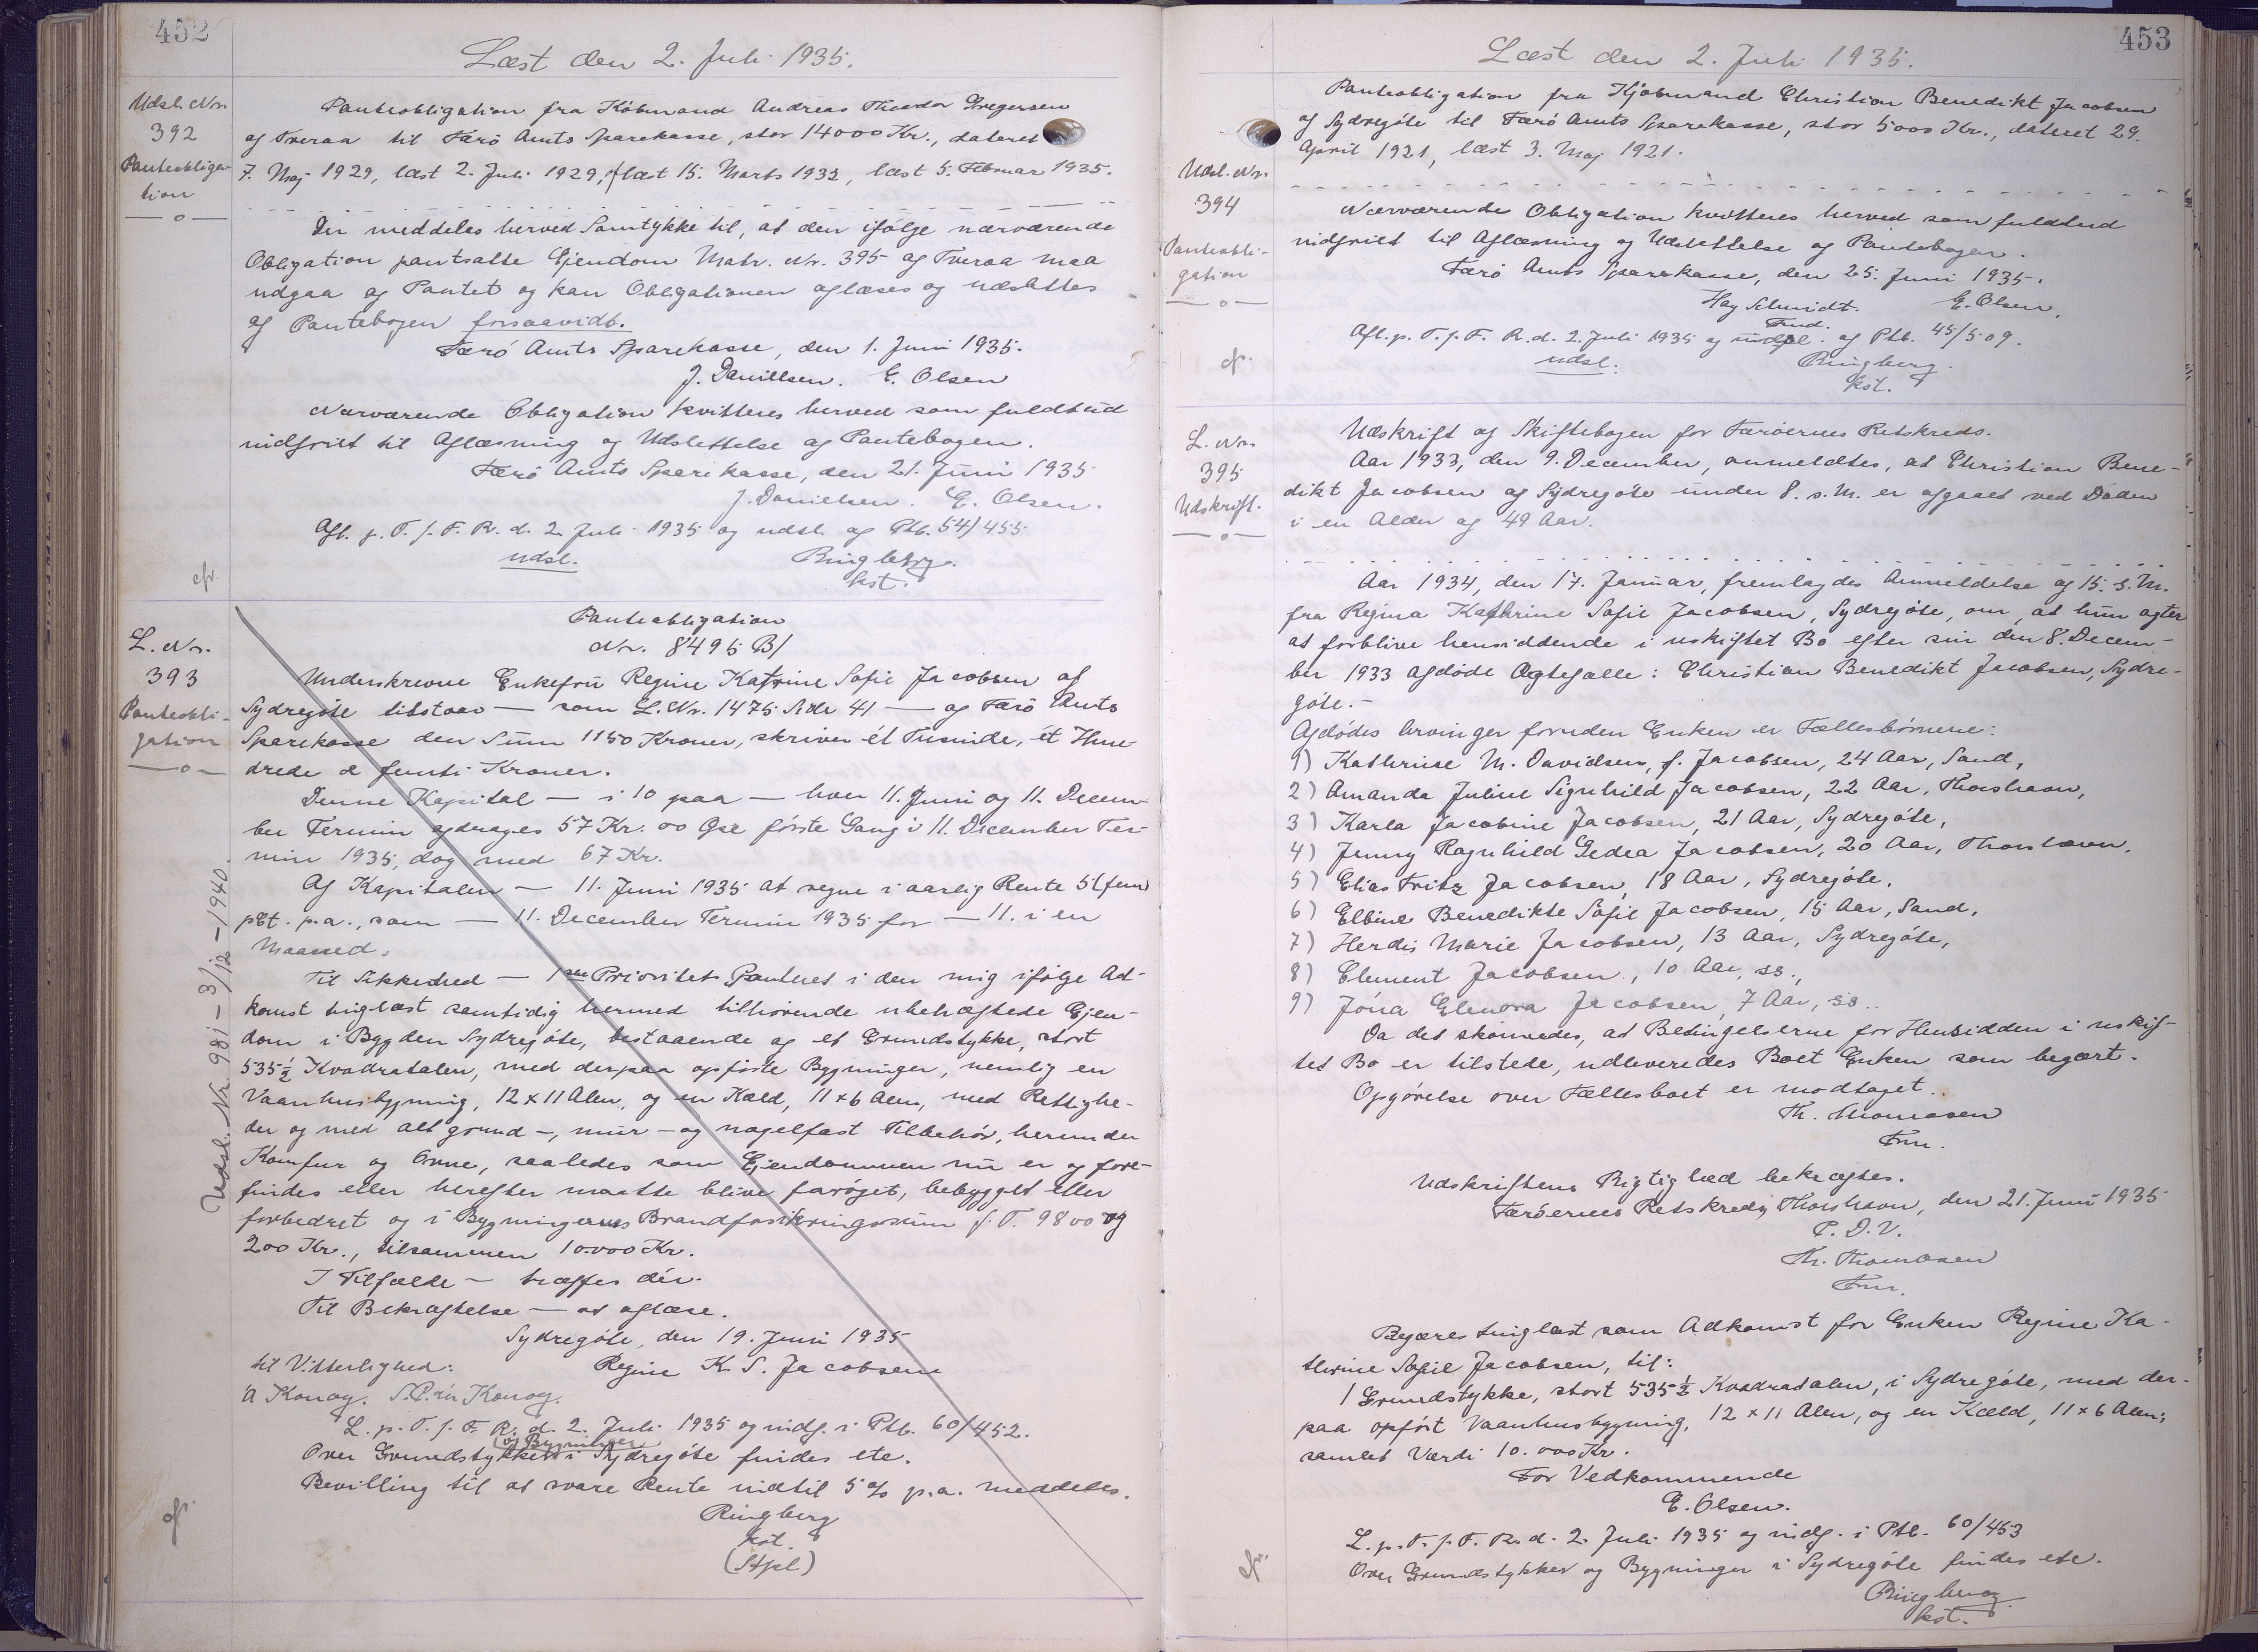 452
Læst den 2. Juli 1935.
Udsl. Nr.
392
Panteobliga-
tion
Panteobligation fra Købmand Andreas Theodor Gregersen
af Tveraa til Færø Amts Sparekasse, stor 14000 Kr., dateret
7. Maj 1929, læst 2. Juli 1929, læst 15. Marts 1932, læst 5. Februar 1935.
Der meddeles herved Samtykke til, at den ifølge nærværende
Obligation pantsatte Ejendom Matr. Nr. 395 af Tveraa maa
udgaa af Pantet og kan Obligationen aflæses og udslettes
af Pantebogen forsaavidt.
Færø Amts Sparekasse, den 1. Juni 1935.
J. Danielsen. E. Olsen
Nærværende Obligation kvitteres herved som fuldtud
indfriet til Aflæsning og Udslettelse af Pantebogen.
Færø Amts Sparekasse, den 21. Juni 1935
J. Danielsen. E. Olsen.
Afl. p. T. f. F. R. d. 2. Juli 1935 og udsl. af Ptb. 54/455
udsl.
Ringberg.
kst.
cfr.
L. Nr.
393
Panteobli-
gation
Panteobligation
Nr. 8495 B/
Underskrevne Enkefru Regine Katrine Sofie Jacobsen af
Sydregøte tilstaar — som L. Nr. 1475 Side 41 — af Færø Amts
Sparekasse den Sum 1150 Kroner, skriver ét Tusinde, ét Hun-
drede & femti Kroner.
Denne Kapital — i 10 paa — hver 11. Juni og 11. Decem-
ber Termin afdrages 57 Kr. 00 Øre første Gang i 11. December Ter-
min 1935, dog med 67 Kr.
Af Kapitalen — 11. Juni 1935 at regne i aarlig Rente 5 (fem)
pCt. p.a., som — 11. December Termin 1935 for — 11. i en
Maaned.
Til Sikkerhed — 1ste Prioritets Panteret i den mig ifølge Ad-
komst tinglæst samtidig hermed tilhørende ubehæftede Ejen-
dom i Bygden Sydregøte, bestaaende af et Grundstykke, stort
535½ Kvadratalen, med derpaa opførte Bygninger, nemlig en
Vaanhusbygning, 12 x 11 Alen, og en Kæld, 11 x 6 Alen, med Rettighe-
der og med alt grund-, mur- og nagelfast Tilbehør, herunder
Komfur og Ovne, saaledes som Ejendommen nu er og fore-
findes eller herefter maatte blive forøget, bebygget eller
forbedret og i Bygningernes Brandforsikringssum f. T. 9800 og
200 Kr., tilsammen 10.000 Kr.
I Tilfælde — træffes dér.
Til Bekræftelse — at aflæse.
Sydregøte, den 19. Juni 1935
til Vitterlighed: Regine K. S. Jacobsen
L. p. T. f. F. R. d. 2. Juli 1935 og indf. i Ptb. 60/452.
(og Bygninger
Over Grundstykket i Sydregøte findes etc.
Bevilling til at svare Rente indtil 5 % p.a. meddeles.
Ringberg
kst.
(Stpl)
cfr.
Udsl. Nr. 981 - 3/12 - 1940.
453
Læst den 2. Juli 1935.
Udsl. Nr.
394
Panteobli-
gation
Panteobligation fra Kjøbmand Christian Benedikt Jacobsen
af Sydregøte til Færø Amts Sparekasse, stor 5000 Kr., dateret 29.
April 1921, læst 3. Maj 1921.
Nærværende Obligation kvitteres herved som fuldtud
indfriet til Aflæsning og Udslettelse af Pantebogen.
Færø Amts Sparekasse, den 25. Juni 1935.
Hay Schmidt. E. Olsen.
Fmd.
Afl. p. T. f. F. R. d. 2. Juli 1935 og udsl. af Ptb. 45/509.
udsl.
Ringberg.
kst.
cfr.
L. Nr.
395
Udskrift.
Udskrift af Skiftebogen for Færøernes Retskreds.
Aar 1933, den 9. December, anmeldtes, at Christian Bene-
dikt Jacobsen af Sydregøte under 8. s.M. er afgaaet ved Døden
i en Alder af 49 Aar.
Aar 1934, den 17. Januar, fremlagdes Anmeldelse af 15. s. M.
fra Regina Kathrine Sofie Jacobsen, Sydregøte, om, at hun agter
at forblive hensiddende i uskiftet Bo efter sin den 8. Decem-
ber 1933 afdøde Ægtefælle: Christian Benedikt Jacobsen, Sydre-
gøte.-
Afdødes Arvinger foruden Enken er Fællesbørnene:
1) Kathrine M. Davidsen, f. Jacobsen, 24 Aar, Sand,
2) Amanda Juline Signhild Jacobsen, 22 Aar, Thorshavn,
3) Karla Jacobine Jacobsen, 21 Aar, Sydregøte,
4) Jenny Ragnhild Gedea Jacobsen, 20 Aar, Thorshavn,
5) Elias Fritz Jacobsen, 18 Aar, Sydregøte,
6) Elbine Benedikte Sofie Jacobsen, 15 Aar, Sand,
7) Herdis Marie Jacobsen, 13 Aar, Sydregøte,
8) Clement Jacobsen, 10 Aar, ss.,
9) Jóna Elenora Jacobsen, 7 Aar, ss..
Da det skønnedes, at Betingelserne for Hensidden i uskif-
tet Bo er tilstede, udleveredes Boet Enken som begært.
Opgørelse over Fællesboet er modtaget.
Th. Thomasen
Fm.
Udskriftens Rigtighed bekræftes.
Færøernes Retskreds, Thorshavn, den 21. Juni 1935
P. D. V.
Th. Thomasen
Fm.
Begæres tinglæst som Adkomst for Enken Regine Ka-
thrine Sofie Jacobsen, til:
1 Grundstykke, stort 535½ Kvadratalen, i Sydregøte, med der-
paa opført Vaanhusbygning, 12 x 11 Alen, og en Kæld, 11 x 6 Alen;
samlet Værdi 10.000 Kr.
For Vedkommende
E. Olsen.
L. p. T. f. F. R. d. 2. Juli 1935 og indf. i Ptb. 60/453
Over Grundstykker og Bygninger i Sydregøte findes etc.
Ringberg.
kst.
cfr.